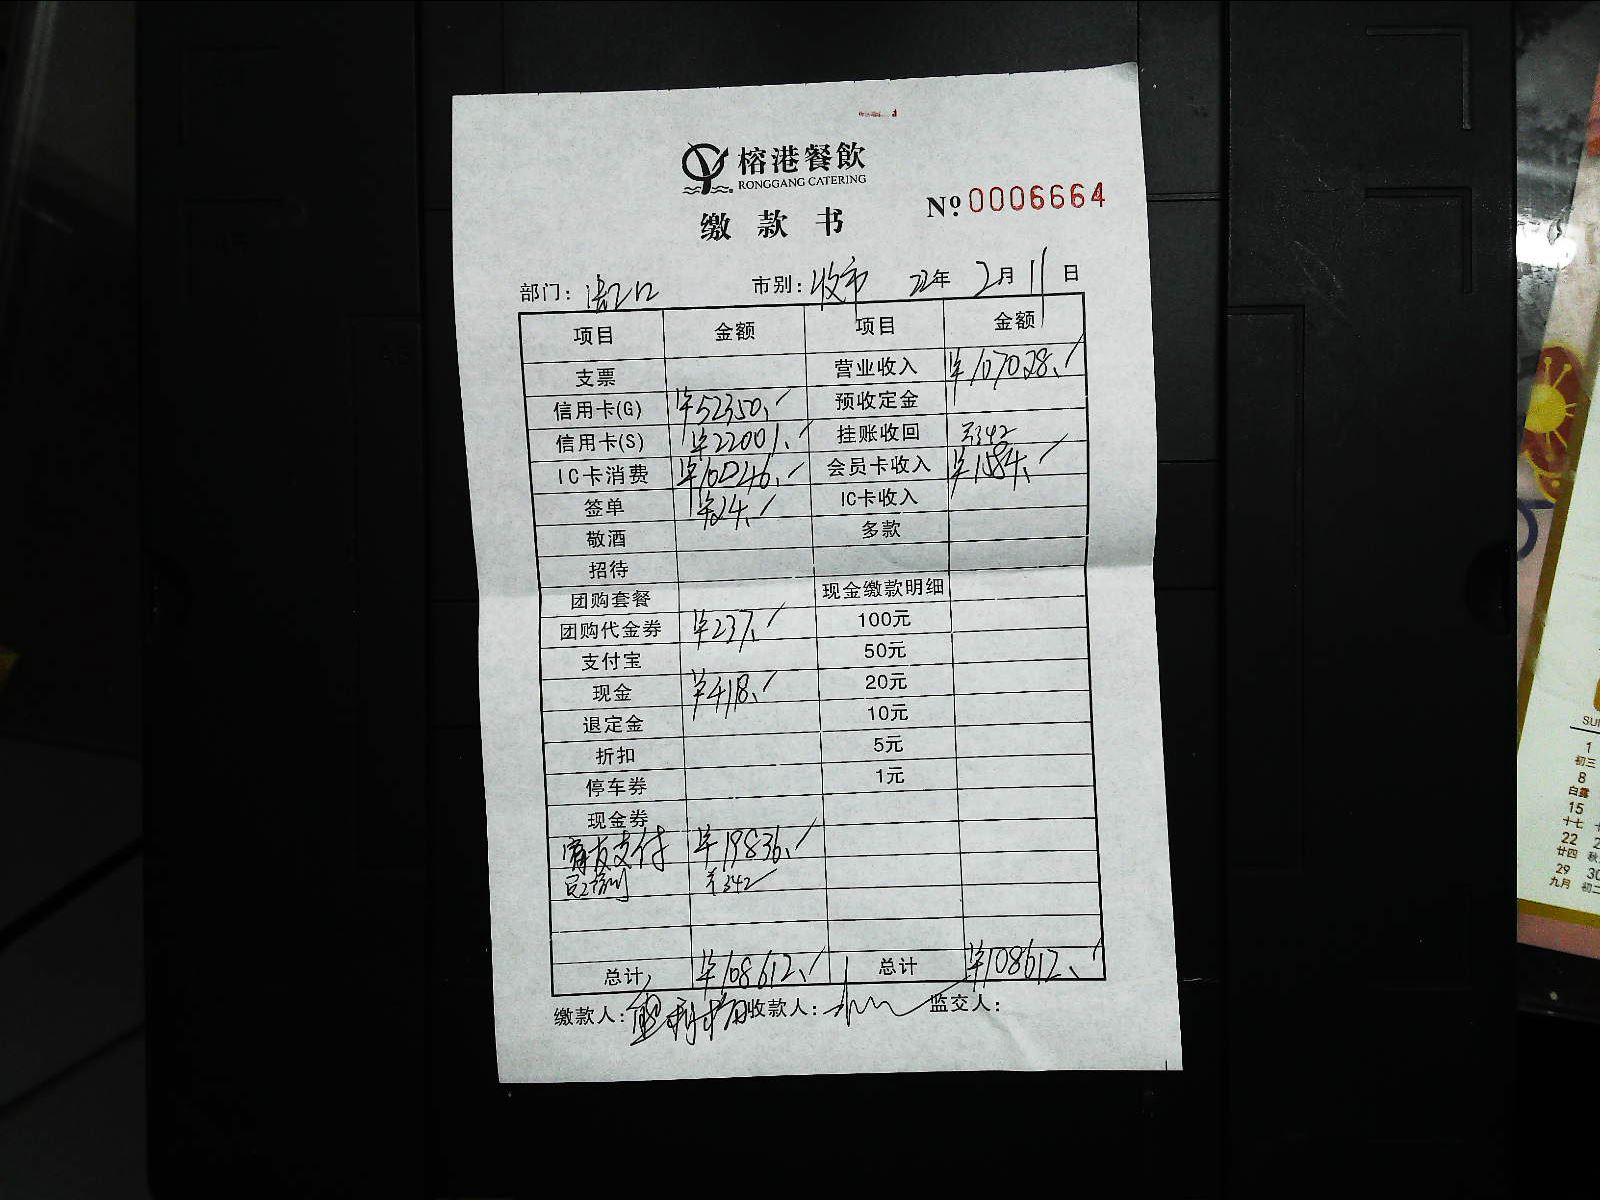 榕港餐飲
RONGGANG CATERING
缴款书 № 0006664
部门: 市别: 收市 22年 2月 11日
项目 金额 项目 金额
支票 营业收入 ¥107028.
信用卡(G) ¥52350. 预收定金
信用卡(S) ¥22001. 挂账收回 342
IC卡消费 会员卡收入 ¥1584.
签单 ¥24. IC卡收入
敬酒 多款
招待
团购套餐 现金缴款明细
团购代金券 ¥237. 100元
支付宝 50元
现金 ¥418. 20元
退定金 10元
折扣 5元
停车券 1元
现金券
支付 ¥19836.
342
总计 ¥108612. 总计 ¥108612.
缴款人: 收款人: 监交人:
SU
1
初三
8
白露
15
十七
22
廿四 秋
29 30
九月 初二